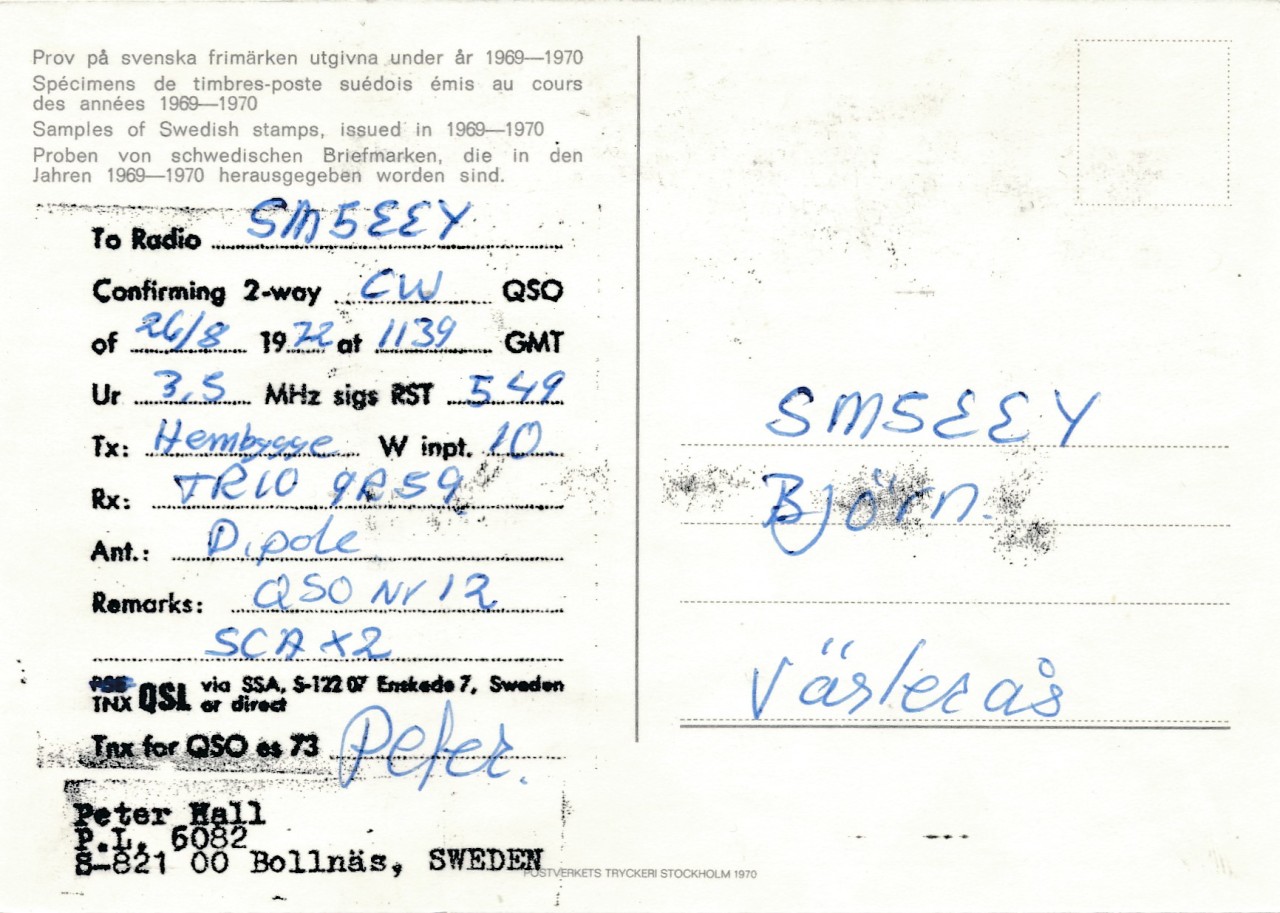 Prov på svenska frimärken utgivna under år 1969—1970
Spécimens de timbres-poste suédois émis au cours
des années 1969—1970
Samples of Swedish stamps, issued in 1969—1970
Proben von schwedischen Briefmarken, die in den
Jahren 1969—1970 herausgegeben worden sind.
To Radio SM5EEY
Confirming 2-way CW QSO
of 26/8 1972 at 1139 GMT
Ur 3,5 MHz sigs RST 549
Tx: Hembygge W inpt. 10
Rx: TRIO 9R59
Ant.: Dipole
Remarks: QSO Nr 12
SCA x2
PSE
TNX QSL via SSA, S-122 07 Enskede 7, Sweden
or direct
Tnx for QSO es 73 Peter.
Peter Hall
P.L. 6082
S-821 00 Bollnäs, SWEDEN
POSTVERKETS TRYCKERI STOCKHOLM 1970
SM5EEY
Björn.
Västerås